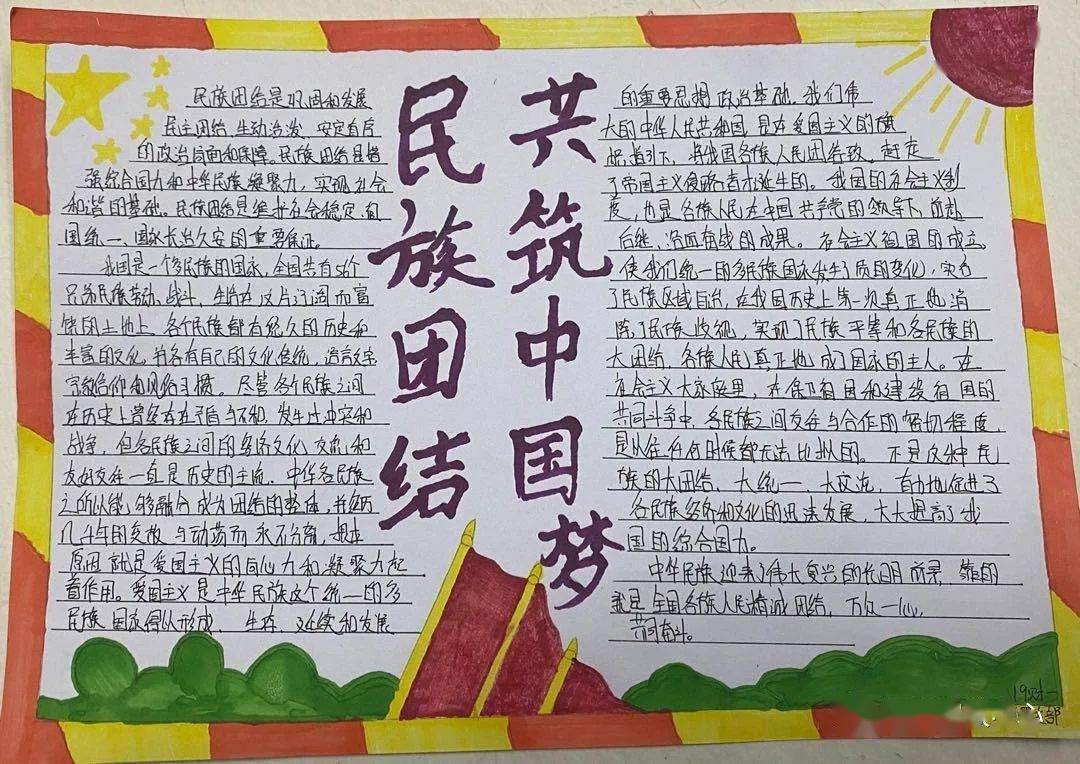 民族团结
共筑中国梦
民族团结是巩固和发展
民主团结,生动活泼,安定有序
的政治局面和保障。民族团结是增
强综合国力和中华民族凝聚力,实现社会
和谐的基础。民族团结是维护社会稳定,有
国统一、国家长治久安的重要保证。
我国是一个多民族的国家,全国共有56个
兄弟民族劳动、战斗、生活在这片辽阔而富
饶的土地上,各个民族都有悠久的历史和
丰富的文化,并各有自己的文化传统,语言文字
宗教信仰和风俗习惯。尽管各个民族之间
在历史上曾经存在矛盾与不和,发生过冲突和
战争,但各民族之间的经济文化交流和
友好交往一直是历史的主流。中华各民族
之所以能够融合成为团结的整体,并经历
几千年的变故与动荡而永不分离,根本
原因就是爱国主义的向心力和凝聚力起
着作用。爱国主义是中华民族这个统一的多
民族国家得以形成、生存、延续和发展
的重要思想政治基础。我们伟
大的中华人民共和国,是在爱国主义的旗
帜指引下,将我国各族人民团结致,赶走
了帝国主义侵略者才诞生的。我国的社会主义制
度,也是各族人民在中国共产党的领导下,前赴
后继、浴血奋战的成果。社会主义祖国的成立,
使我们统一的多民族国家发生了质的变化,实为
了民族区域自治,在我国历史上第一次真正地消
除了民族歧视,实现了民族平等和各民族的
大团结,各族人民真正地成了国家的主人。在
社会主义大家庭里,在保卫祖国和建设祖国的
共同斗争中,各民族之间交往与合作的密切程度,
是从往任何时候都无法比拟的。正是这种民
族的大团结、大统一、大交流,有力地促进了
各民族经济和文化的迅速发展,大大提高了我
国的综合国力。
中华民族迎来了伟大复兴的光明前景,靠的
就是全国各族人民精诚团结,万众一心,
共同奋斗。
19财一
部